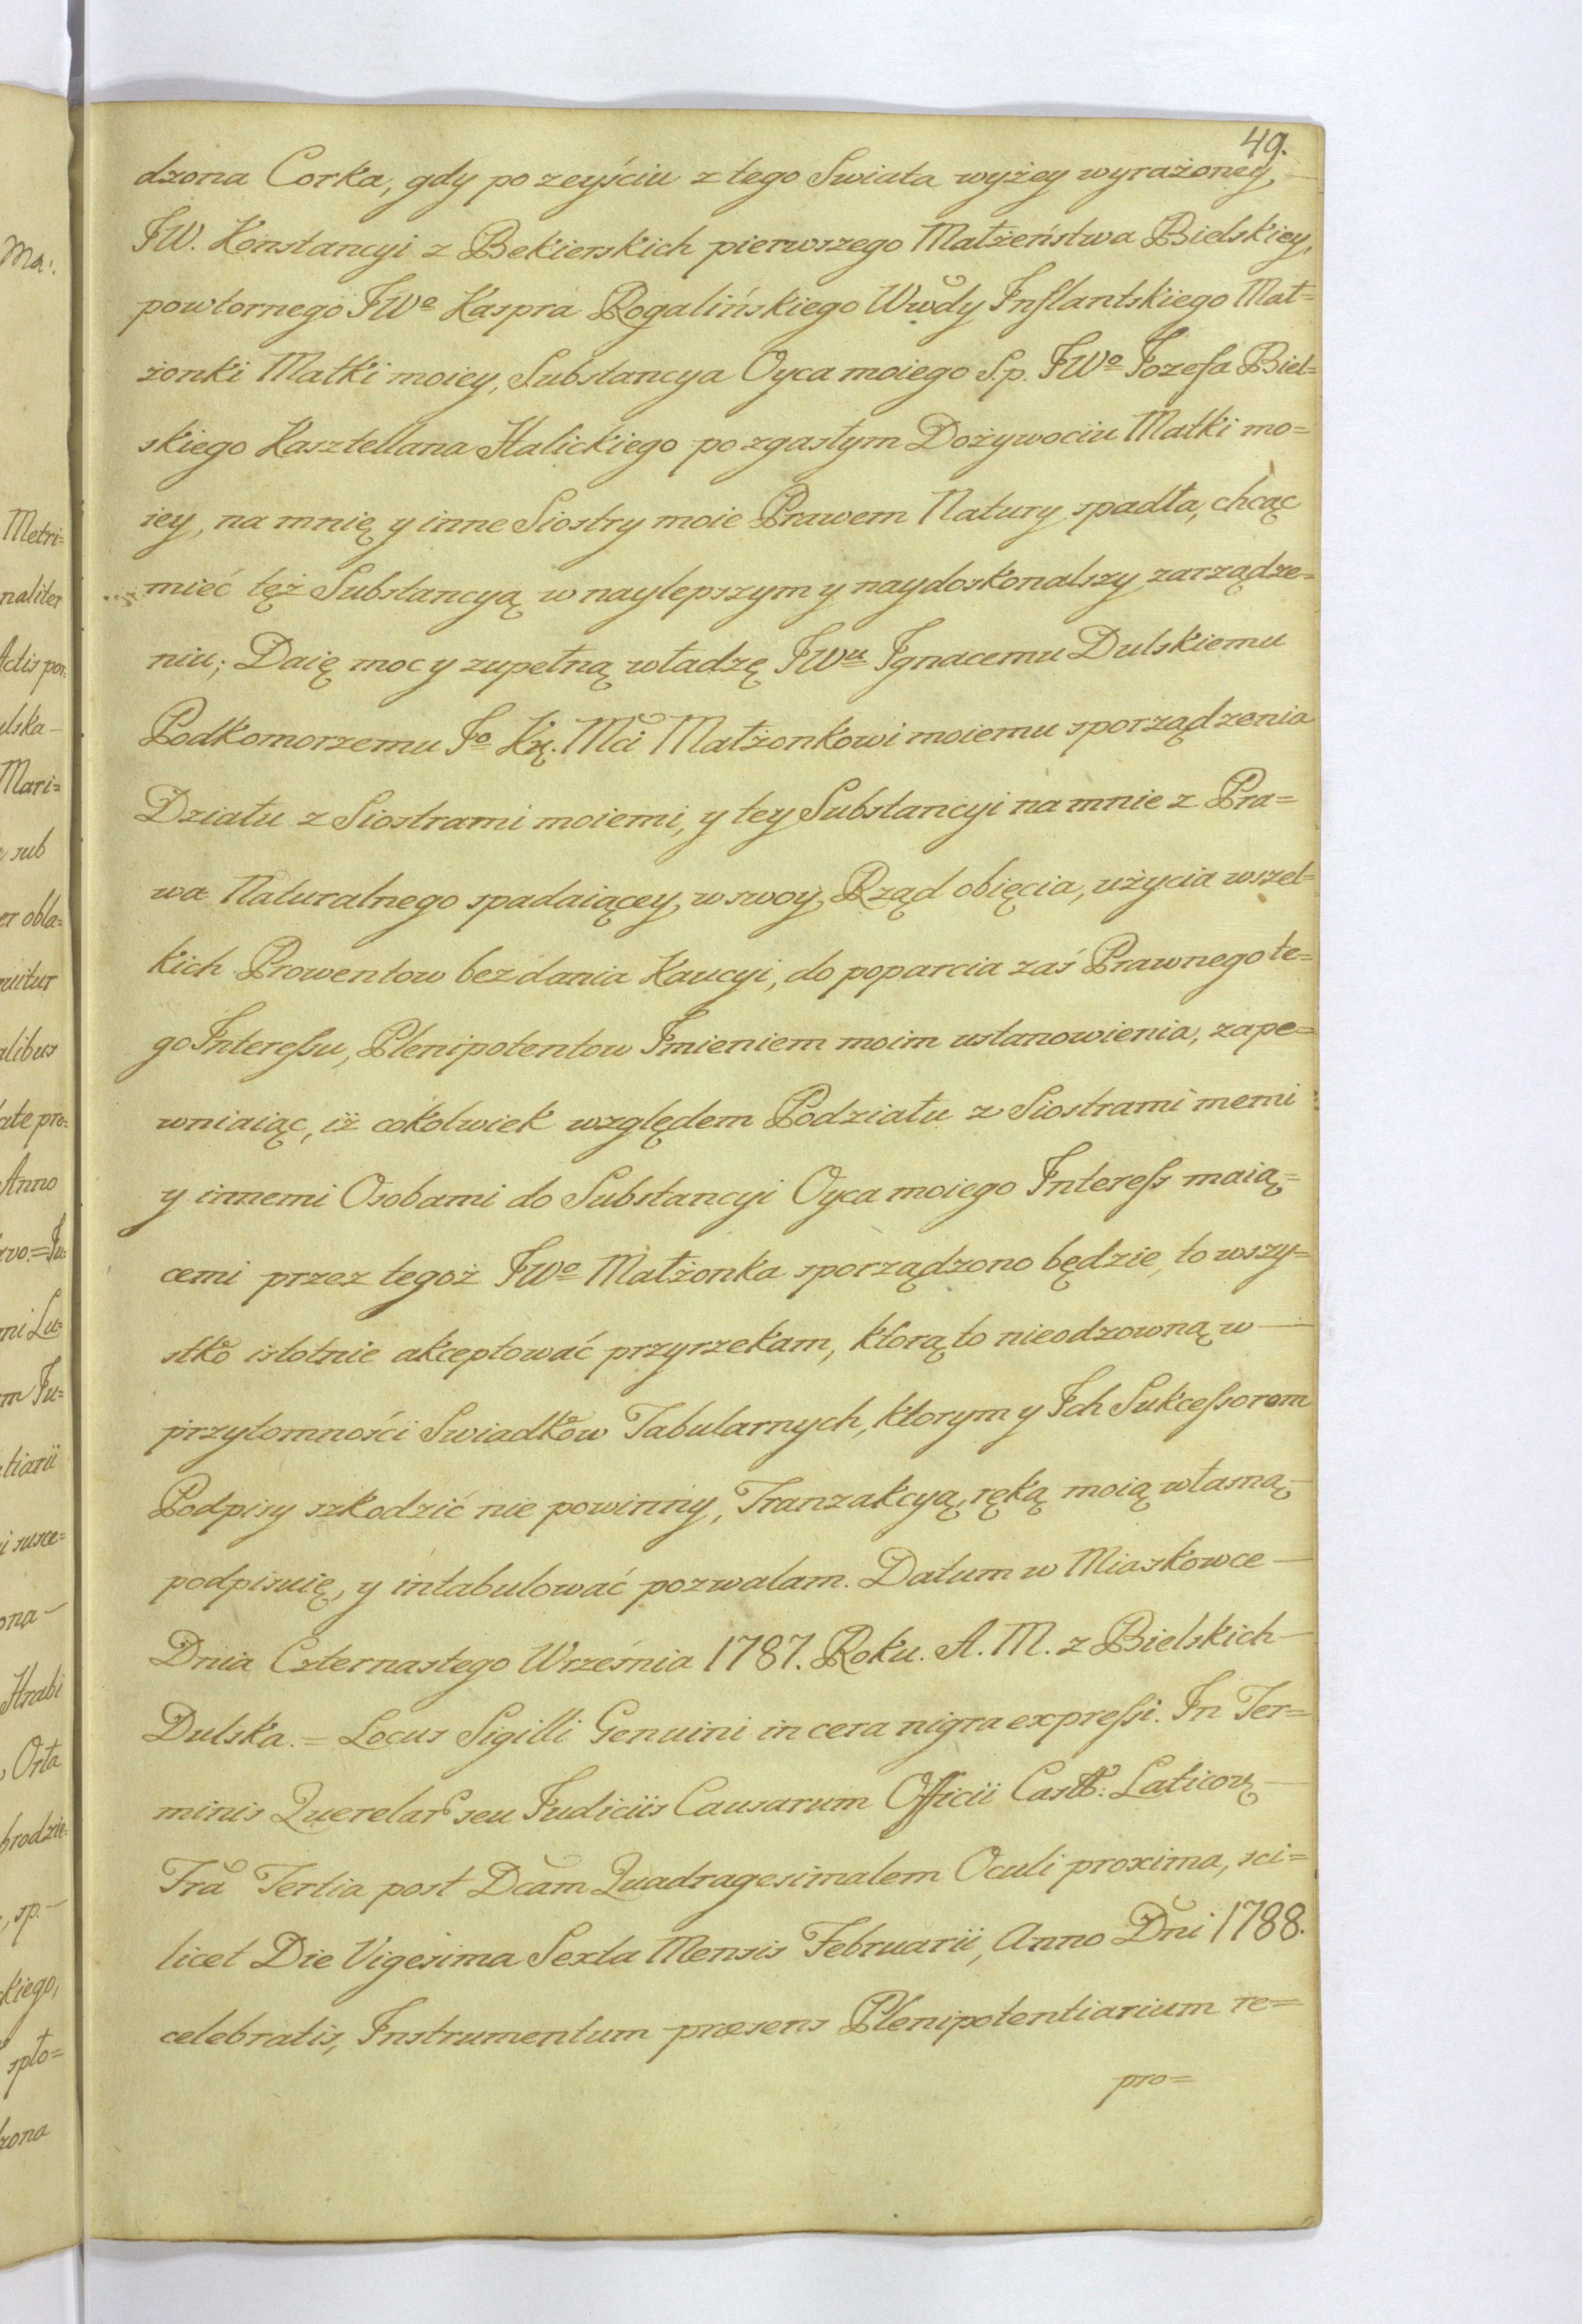 49.
dzona Corka, gdy po zeyściu z tego Swiata wyżey wyrażoney,
JW. Konstancyi z Bekierskich pierwszego Małżeństwa Bielskiey,
powtornego JWo Kaspra Rogalińskiego Wwdy Inflantskiego Mał=
żonki Matki moiey, Substancya Oyca moiego S.p. JWo Jozefa Biel=
skiego Kasztellana Halickiego po zgasłym Dożywociu Matki mo=
iey, na mnię y inne Siostry moie Prawem Natury spadła, chcąc
mieć tęż Substancyą w naylepszym y naydoskonalszy zarządze=
niu; Daię moc y zupełną władzę JWu Ignacemu Dulskiemu
Podkomorzemu Jo Kr. Mci Małżonkowi moiemu sporządzenia
Działu z Siostrami moiemi, y tey Substancyi na mnie z Pra=
wa Naturalnego spadaiącey, w swoy Rząd obięcia, użycia wszel=
kich Prowentow bez dania Kaucyi, do poparcia zaś Prawnego te=
go Interessu, Plenipotentow Imieniem moim ustanowienia, zape=
wniaiąc, iż cokolwiek względem Podziału z Siostrami memi
y innemi Osobami do Substancyi Oyca moiego Interess maią=
cemi przez tegoż JWo Małżonka sporządzono będzie, to wszy=
stko istotnie akceptować przyrzekam, ktorą to nieodzowną w
przytomności Swiadkow Tabularnych, ktorym y Ich Sukcessorom
Podpisy szkodzić nie powinny, Tranzakcyą, ręką moią własną
podpisuię, y intabulować pozwalam. Datum w Miaskowce
Dnia Czternastego Września 1787. Roku. A. M. z Bielskich
Dulska. = Locus Sigilli Genuini in cera nigra expressi. In Ter=
minis Querelar seu Judiciis Causarum Officii Castr: Laticov
Fra Tertia post Dcam Quadragesimalem Oculi proxima, sci=
licet Die Vigesima Sexta Mensis Februarii, Anno Dni 1788.
celebratis, Instrumentum præsens Plenipotentiarium re=
pro=